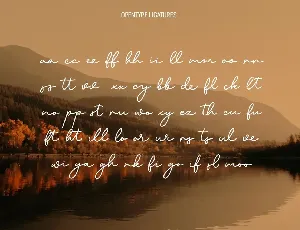 OPENTYPE LIGATURES
aa cc ee ff hh ii ll mm oo nn
ss tt vv xx cy bb de fl ck lt
no pp st nu wo xy ez th cu fu
ft ht ill lo or ur ns ts ul ve
wi ya gh nk fr go if sl moo